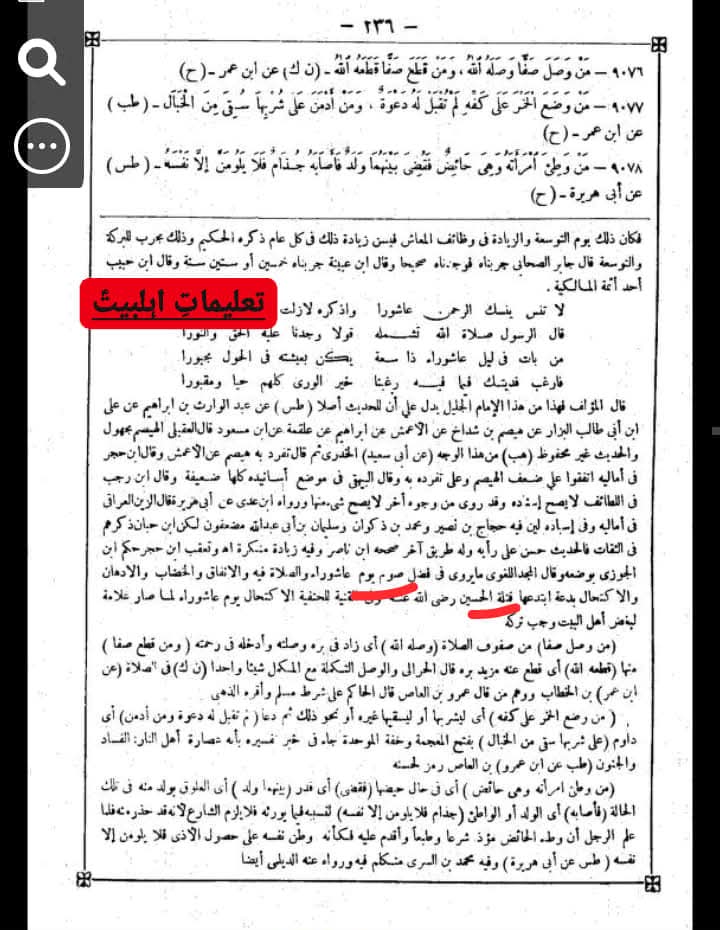 — ٢٣٦ —
٩٠٧٦ — مَنْ وَصَلَ صَفًّا وَصَلَهُ اللهُ ، وَمَنْ قَطَعَ صَفًّا قَطَعَهُ اللهُ ـ (ن ك) عن ابن عمر ـ (ح)
٩٠٧٧ — مَنْ وَضَعَ الْخَمْرَ عَلَى كَفِّهِ لَمْ تُقْبَلْ لَهُ دَعْوَةٌ ، وَمَنْ أَدْمَنَ عَلَى شُرْبِهَا سُقِيَ مِنَ الْخَبَالِ ـ (طب)
عن ابن عمر ـ (ح)
٩٠٧٨ — مَنْ وَطِئَ امْرَأَتَهُ وَهِيَ حَائِضٌ فَقُضِيَ بَيْنَهُمَا وَلَدٌ فَأَصَابَهُ جُذَامٌ فَلَا يَلُومَنَّ إِلَّا نَفْسَهُ ـ (طس)
عن أبي هريرة ـ (ح)
فكان ذلك يوم التوسعة والزيادة فى وظائف المعاش فيسن زيادة ذلك فى كل عام ذكره الحكيم وذلك مجرب للبركة
والتوسعة قال جابر الصحابى جربناه فوجدناه صحيحا وقال ابن عيينة جربناه خمسين أو ستين سنة وقال ابن حبيب
أحد أئمة المـالـكية .
لا تنس ينسك الرحمن عاشورا واذكره لازلت
تعلیماتِ اہلبیتؑ
قال الرسول صلاة الله تشـمله قولا وجدنا عليه الحق والنورا
من بات فى ليل عاشوراء ذا سعة يكن بعيشته فى الحول مجبورا
فارغب فديتك فيما فيـه رغبنا خير الورى كلهم حيا ومقبورا
قال المؤلف فهذا من هذا الإمام الجليل يدل على أن للحديث أصلا (طس) عن عبد الوارث بن ابراهيم عن على
ابن أبى طالب البزار عن هيصم بن شداخ عن الأعمش عن ابراهيم عن علقمة عن ابن مسعود قال العقيلى الهيصم مجهول
والحديث غير محفوظ (هب) من هذا الوجه (عن أبى سعيد) الخدرى ثم قال تفرد به هيصم عن الأعمش وقال ابن حجر
فى أماليه اتفقوا على ضعف الهيصم وعلى تفرده به وقال البيهقى فى موضع أسانيده كلها ضعيفة وقال ابن رجب
فى اللطائف لايصح إسناده وقد روى من وجوه أخر لايصح شىء منها ورواه ابن عدى عن أبى هريرة قال الزين العراقى
فى أماليه وفى إسناده لين فيه حجاج بن نصير ومحمد بن ذكوان وسليمان بن أبى عبدالله مضعفون لكن ابن حبان ذكرهم
فى الثقات فالحديث حسن على رأيه وله طريق آخر صححه ابن ناصر وفيه زيادة منكرة اه وتعقب ابن حجر حكم ابن
الجوزى بوضعه وقال المجد اللغوى مايروى فى فضل صوم يوم عاشوراء والصلاة فيه والانفاق والخضاب والادهان
والاكتحال بدعة ابتدعها قتلة الحسين رضى الله عنه وفى القنية للحنفية الاكتحال يوم عاشوراء لما صار علامة
لبغض أهل البيت وجب تركه
(من وصل صفا) من صفوف الصلاة (وصله الله) أى زاد فى بره وصلته وأدخله فى رحمته (ومن قطع صفا)
منها (قطعه الله) أى قطع عنه مزيد بره قال الحرالى والوصل التكملة مع المكمل شيئا واحدا (ن ك) فى الصلاة (عن
ابن عمر) بن الخطاب ووهم من قال عمرو بن العاص قال الحاكم على شرط مسلم وأقره الذهبى
(من وضع الخمر على كفه) أى ليشربها أو ليسقيها غيره أو نحو ذلك ثم دعا (لم تقبل له دعوة ومن أدمن) أى
داوم (على شربها سقى من الخبال) بفتح المعجمة وخفة الموحدة جاء فى خبر تفسيره بأنه عصارة أهل النار: الفساد
والجنون (طب عن ابن عمرو) بن العاص رمز لحسنه
(من وطئ امرأته وهى حائض) أى فى حال حيضها (فقضى) أى قدر (بينهما ولد) أى العلوق بولد منه فى تلك
الحالة (فأصابه) أى الولد أو الواطئ (جذام فلا يلومن إلا نفسه) لتسببه فيما يورثه فلا يلزم الشارع لأنه قد حذر منه فلما
علم الرجل أن وطء الحائض مؤذ شرعا وطبعاً وأقدم عليه فكأنه وطن نفسه على حصول الاذى فلا يلومن إلا
نفسه (طس عن أبى هريرة) وفيه محمد بن السرى متكلم فيه ورواه عنه الديلمى أيضا